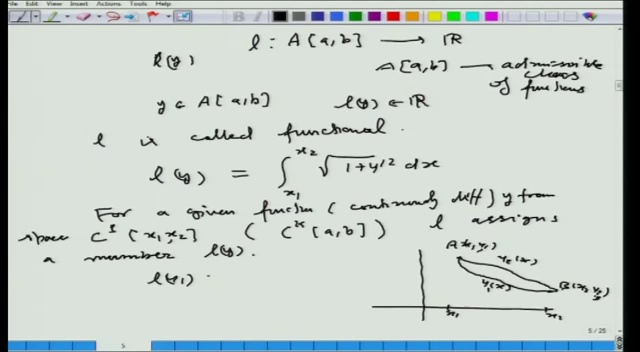 l : A[a,b] ⟶ ℝ
l(y) A[a,b] — admissible class of functions
y ∈ A[a,b] l(y) ∈ ℝ
l is called functional.
l(y) = ∫_{x₁}^{x₂} √(1+y'²) dx
For a given function (continuously diff) y from
space C¹[x₁,x₂] (Cᵏ[a,b]) l assigns
a number l(y).
l(y₁)
A(x₁,y₁)
y₂(x)
y₁(x)
B(x₂,y₂)
x₁ x₂
5 / 25
5